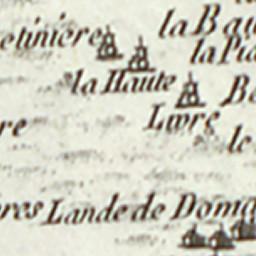 etinière
la Bau
la Pia
la Haute
Be
Livre
re
le
ores Lande de Doma